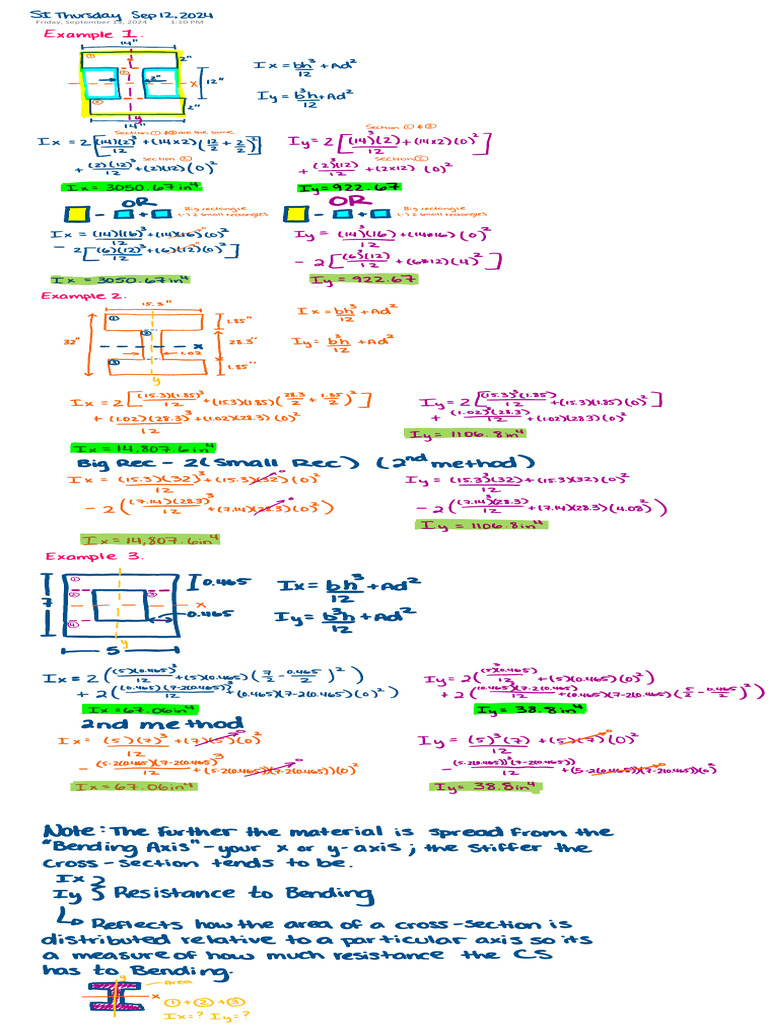 SI Thursday Sep 12, 2024
Friday, September 13, 2024 1:10 PM
Example 1.
14"
① 2"
② 2" x 12"
③ 2"
y
14"
Ix = bh³/12 + Ad²
Iy = b³h/12 + Ad²
Section ① & ③ are the same
Ix = 2[(14)(2)³/12 + (14×2)(12/2 + 2/2)²]
Section ②
+ (2)(12)³/12 + (2)(12)(0)²
Ix = 3050.67in⁴
Section ① & ③
Iy = 2[(14)³(2)/12 + (14×2)(0)²]
Section ②
+ (2)³(12)/12 + (2×12)(0)²
Iy = 922.67
OR
Big rectangle
(-) 2 small rectangles
Ix = (14)(16)³/12 + (14)(16)(0)²
- 2[(6)(12)³/12 + (6)(12)(0)²]
Ix = 3050.67in⁴
OR
Big rectangle
(-) 2 small rectangles
Iy = (14)³(16)/12 + (14×16)(0)²
- 2[(6)³(12)/12 + (6×12)(4)²]
Iy = 922.67
Example 2.
15.3"
① 1.85"
32" ② x 28.3"
1.02
③ 1.85"
y
Ix = bh³/12 + Ad²
Iy = b³h/12 + Ad²
Ix = 2[(15.3)(1.85)³/12 + (15.3)(1.85)(28.3/2 + 1.85/2)²]
+ (1.02)(28.3)³/12 + (1.02)(28.3)(0)²
Ix = 14,807.6in⁴
Iy = 2[(15.3)³(1.85)/12 + (15.3)(1.85)(0)²]
+ (1.02)³(28.3)/12 + (1.02)(28.3)(0)²
Iy = 1106.8in⁴
Big Rec - 2(Small Rec) (2nd method)
Ix = (15.3)(32)³/12 + (15.3)(32)(0)²
- 2((7.14)(28.3)³/12 + (7.14)(28.3)(0)²)
Ix = 14,807.6in⁴
Iy = (15.3)³(32)/12 + (15.3)(32)(0)²
- 2((7.14)³(28.3)/12 + (7.14)(28.3)(4.08)²)
Iy = 1106.8in⁴
Example 3.
① 0.465
7 ② ③ x
0.465
④ y
5
Ix = bh³/12 + Ad²
Iy = b³h/12 + Ad²
Ix = 2((5)(0.465)³/12 + (5)(0.465)(7/2 - 0.465/2)²)
+ 2((0.465)(7-2(0.465))³/12 + (0.465)(7-2(0.465)(0)²)
Ix = 67.06in⁴
Iy = 2((5)³(0.465)/12 + (5)(0.465)(0)²)
+ 2((0.465)³(7-2(0.465)/12 + (0.465)(7-2(0.465)(5/2 - 0.465/2)²)
Iy = 38.8in⁴
2nd method
Ix = (5)(7)³/12 + (7)(5)(0)²
- (5-2(0.465))(7-2(0.465)³/12 + (5-2(0.465))(7-2(0.465))(0)²
Ix = 67.06in⁴
Iy = (5)³(7)/12 + (5)(7)(0)²
- (5-2(0.465))³(7-2(0.465))/12 + (5-2(0.465))(7-2(0.465)(0)²
Iy = 38.8in⁴
Note: The further the material is spread from the
"Bending Axis" - your x or y-axis; the stiffer the
cross-section tends to be.
Ix
Iy } Resistance to Bending
↳ Reflects how the area of a cross-section is
distributed relative to a particular axis so its
a measure of how much resistance the CS
has to Bending.
y Area
x ① + ② + ③
Ix = ? Iy = ?